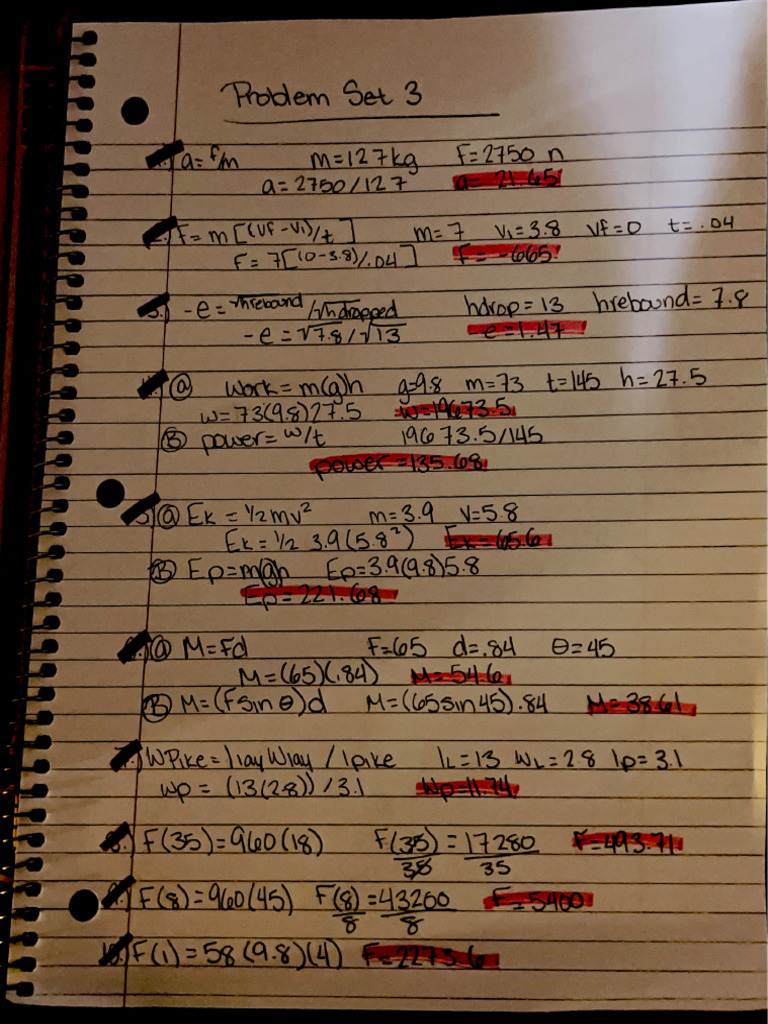 Problem Set 3
a=F/m m=127kg F=2750 n
a=2750/127 a=21.65
2.) F=m[(vf-vi)/t] m=7 vi=3.8 vf=0 t=.04
F=7[(0-3.8)/.04] F=-665
3.) -e=√hrebound/√hdropped hdrop=13 hrebound=7.8
-e=√7.8/√13 e=1.47
ⓐ Work=m(g)h g=9.8 m=73 t=145 h=27.5
W=73(9.8)27.5 W=19673.5
Ⓑ power=w/t 19673.5/145
power=135.68
5.) ⓐ Ek=1/2mv² m=3.9 v=5.8
Ek=1/2 3.9(5.8²) Ek=65.6
Ⓑ Ep=m(g)h Ep=3.9(9.8)5.8
Ep=221.68
ⓐ M=Fd F=65 d=.84 θ=45
M=(65)(.84) M=54.6
Ⓑ M=(Fsinθ)d M=(65sin45).84 M=38.61
7.) WPike=IlayWlay/Ipike IL=13 WL=2.8 Ip=3.1
Wp=(13(2.8))/3.1 Wp=11.74
8.) F(35)=960(18) F(35)/35=17280/35 F=493.71
9.) F(8)=960(45) F(8)/8=43200/8 F=5400
10.) F(1)=58(9.8)(4) F=2273.6